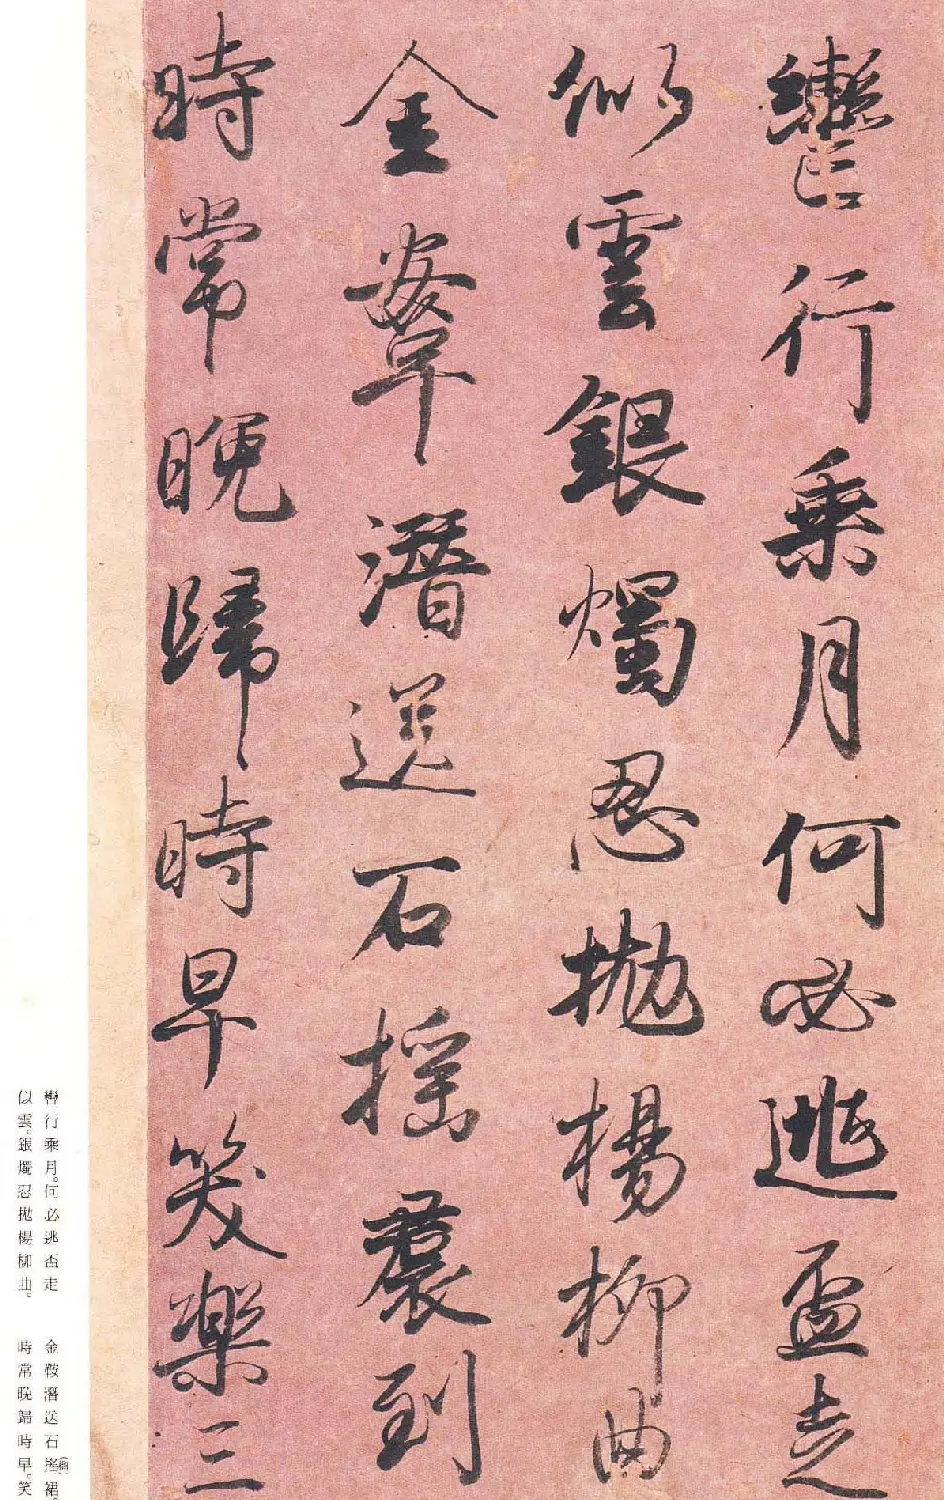 轡行乘月何必逃盃走
似雲銀燭忍拋楊柳曲
金鞍潛送石搖裠到
時常晚歸時早笑樂三
轡行乘月。何必逃盃走
似雲。銀燭忍拋楊柳曲。
金鞍潛送石搖(榴)裙。
時常晚歸時早。笑